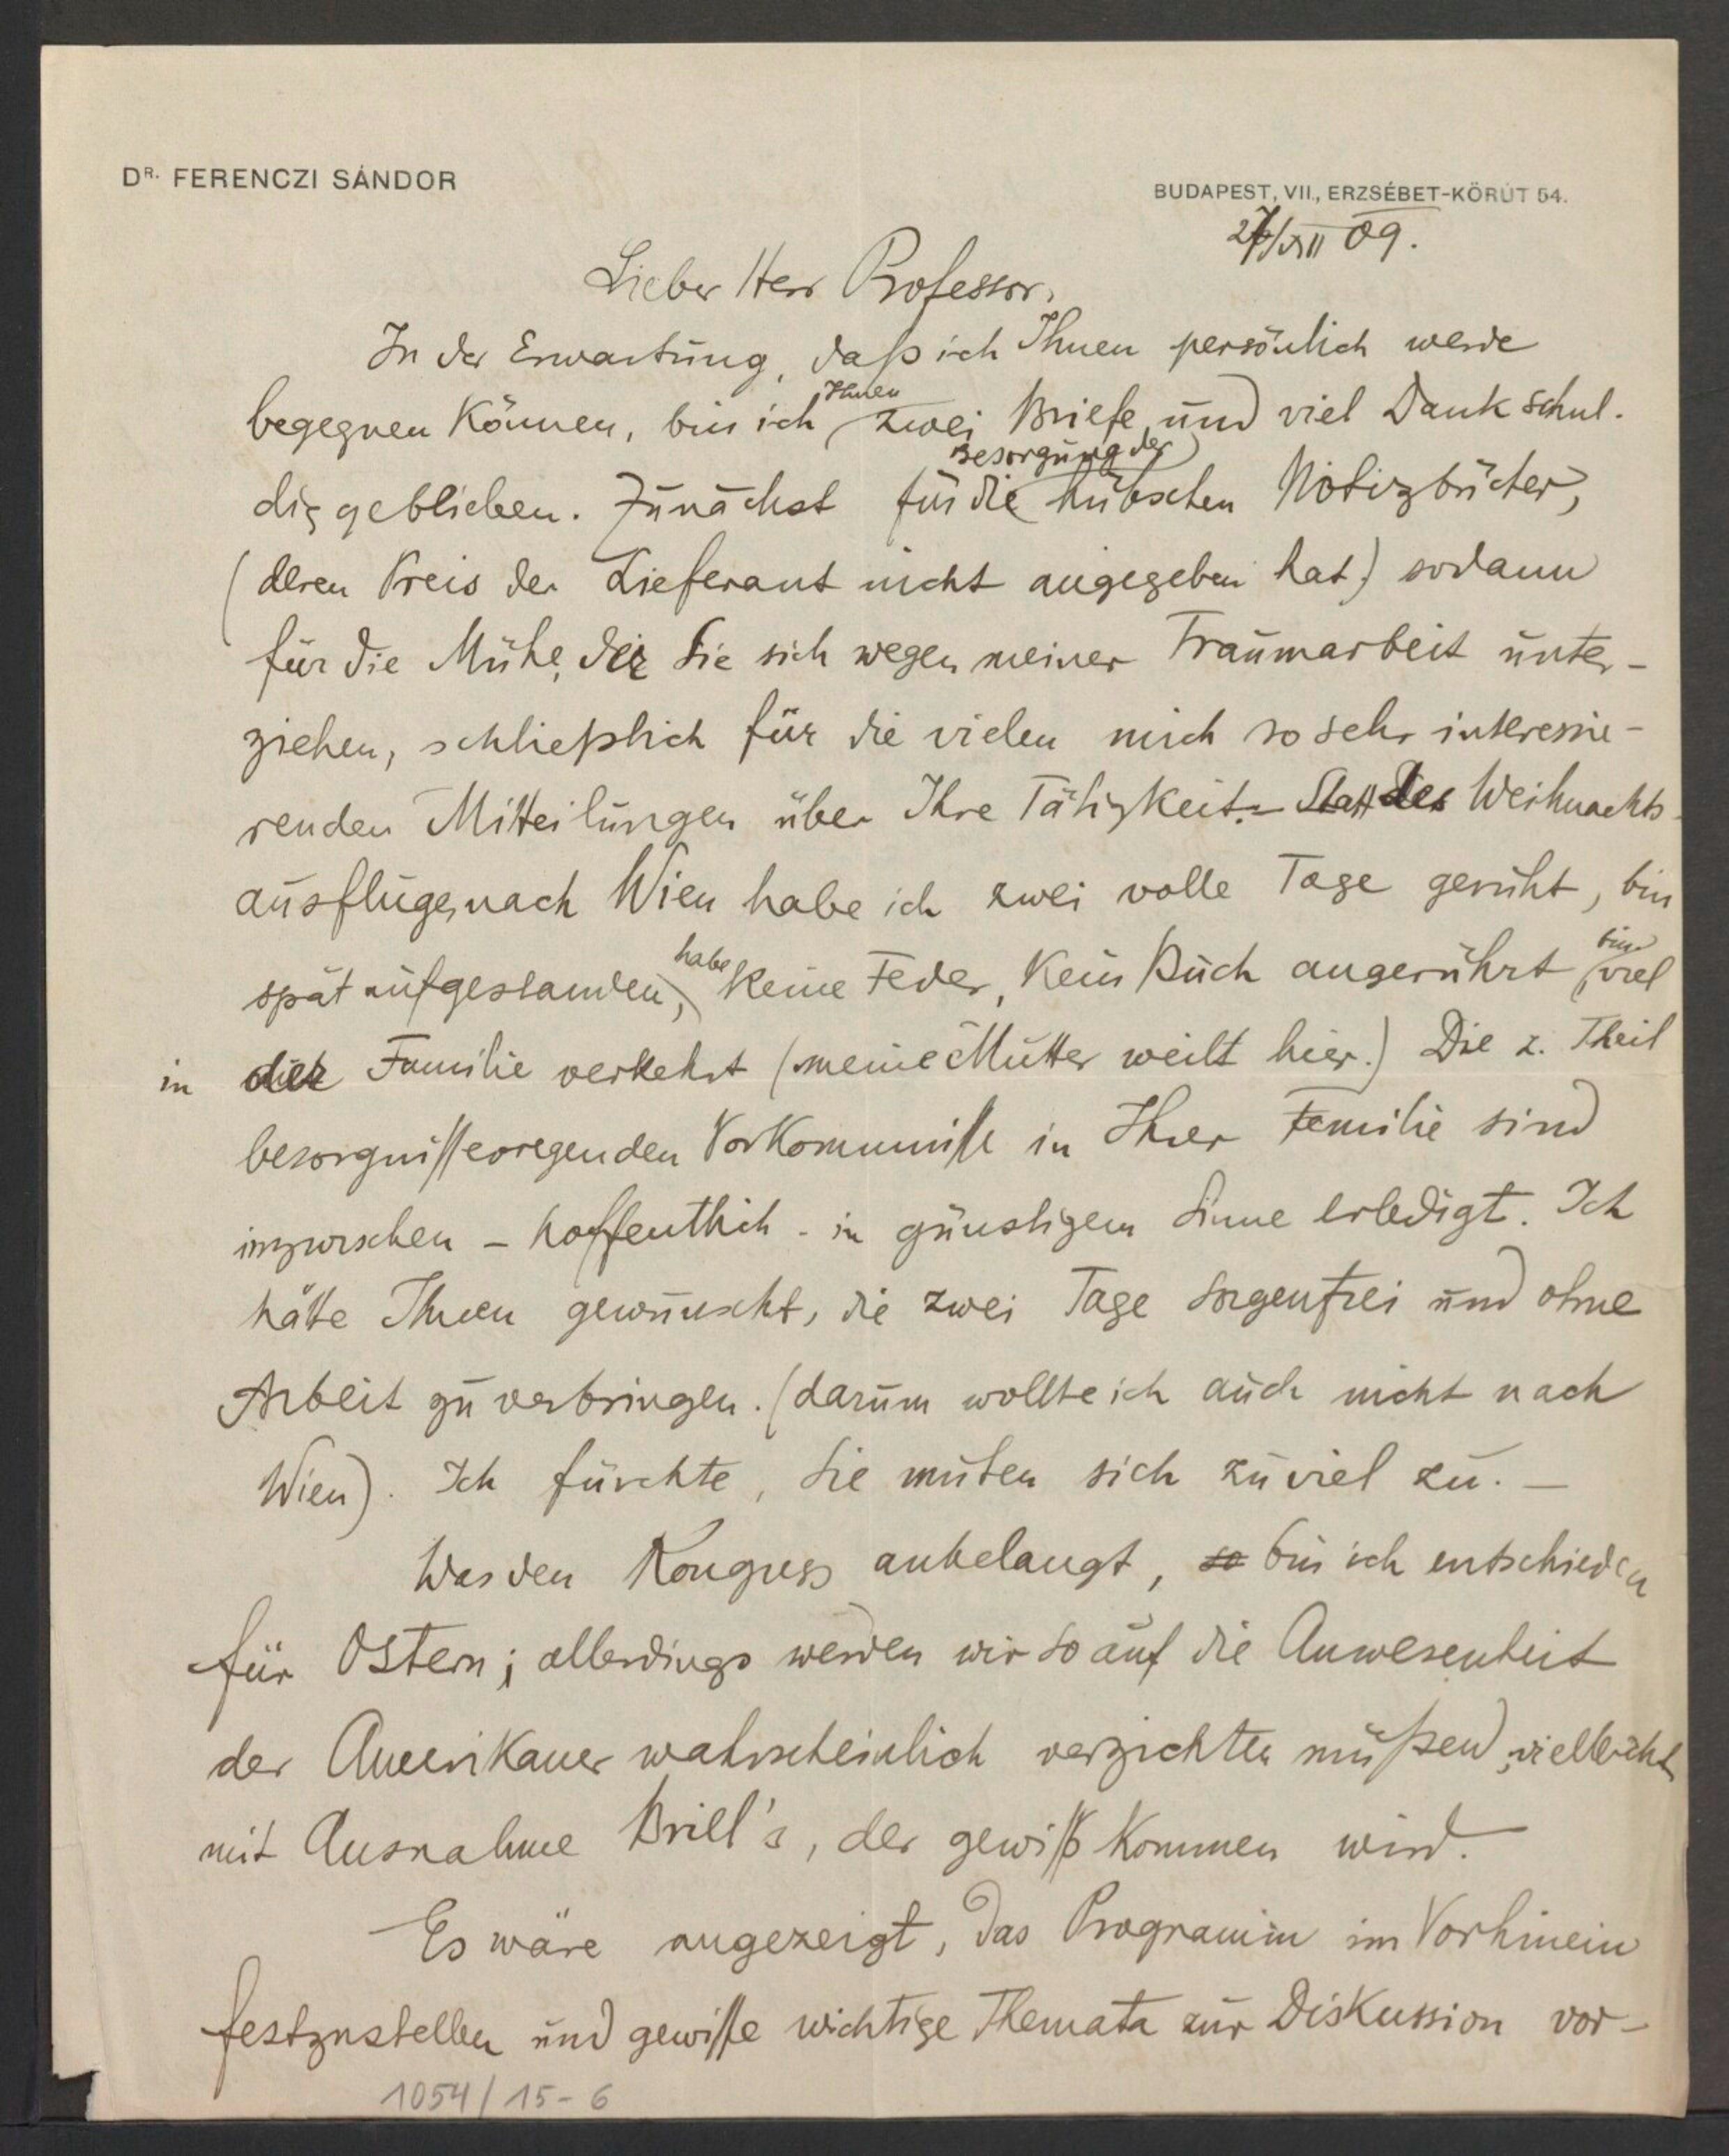 DR. FERENCZI SÁNDOR
BUDAPEST, VII., ERZSÉBET-KÖRÚT 54.
27/XII 09.
Lieber Herr Professor,
In der Erwartung, daß ich Ihnen persönlich werde
begegnen können, bin ich Ihnen zwei Briefe und viel Dank schul-
dig geblieben. Zunächst für die Besorgung der hübschen Notizbücher,
(deren Preis der Lieferant nicht angegeben hat) sodann
für die Mühe, der Sie sich wegen meiner Traumarbeit unter-
ziehen, schließlich für die vielen mich so sehr interessie-
renden Mitteilungen über Ihre Tätigkeit. – Statt des Weihnachts-
ausfluges nach Wien habe ich zwei volle Tage geruht, bin
spät aufgestanden, habe keine Feder, kein Buch angerührt, bin viel
in der Familie verkehrt (meine Mutter weilt hier.) Die z. Theil
besorgnisserregenden Vorkommnisse in Ihrer Familie sind
inzwischen – hoffentlich – in günstigem Sinne erledigt. Ich
hätte Ihnen gewünscht, die zwei Tage sorgenfrei und ohne
Arbeit zu verbringen. (darum wollte ich auch nicht nach
Wien). Ich fürchte, Sie muten sich zuviel zu. –
Was den Kongress anbelangt, so bin ich entschieden
für Ostern; allerdings werden wir so auf die Anwesenheit
der Amerikaner wahrscheinlich verzichten müßen, vielleicht
mit Ausnahme Brill's, der gewiß kommen wird.
Es wäre angezeigt, das Programm im Vorhinein
festzustellen und gewisse wichtige Themata zur Diskussion vor-
1054/15-6